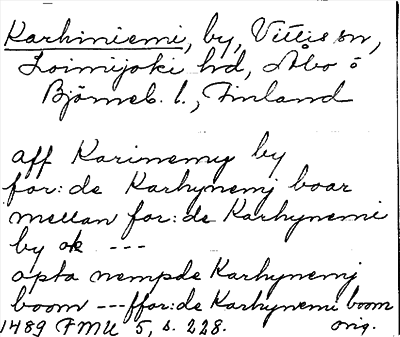 Karhiniemi, by, Vittis sn,
Loimijoki hd, Åbo o
Björneb. l., Finland
aff Karinemy by
for:de Karhynemj boar
mellan for:de Karhynemi
by ok ---
opta nempde Karhynemj
boom --- ffor:de Karhynemi boom
1489 FMU 5, s. 228. orig.